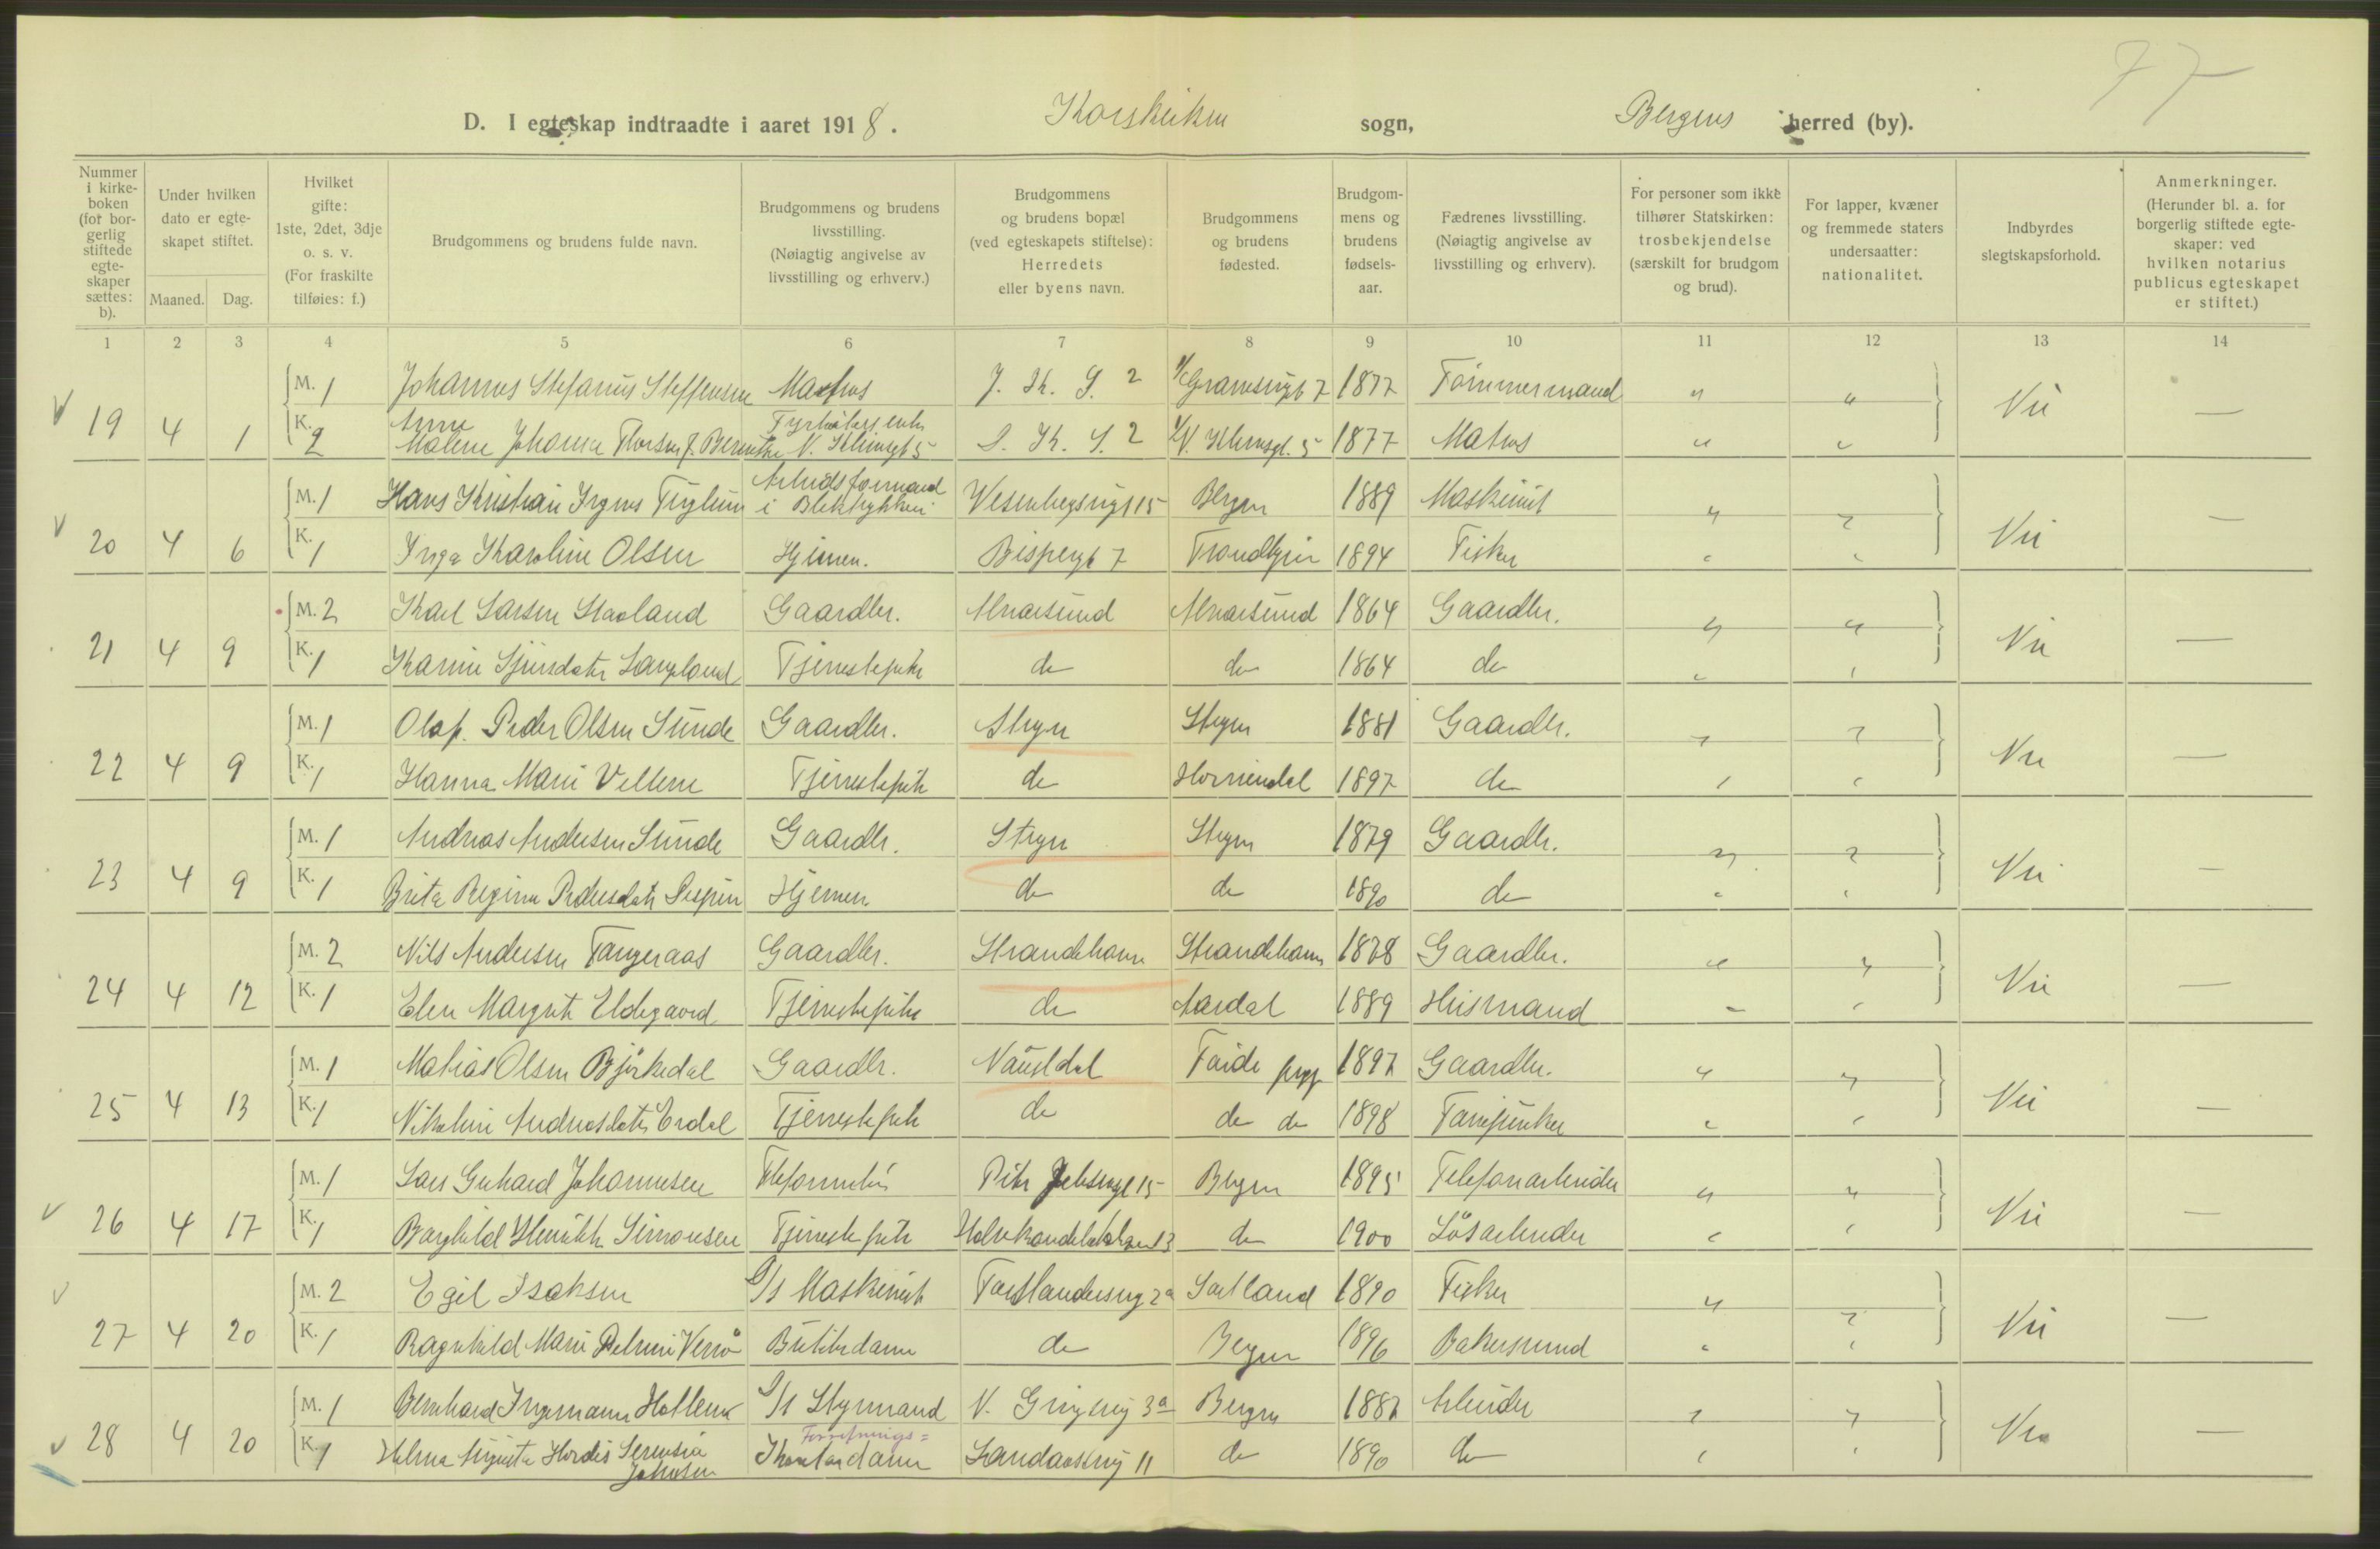 77
D. I egteskap indtraadte i aaret 1918. Korskirken sogn, Bergens herred (by).
Nummer i kirkeboken (for borgerlig stiftede egteskaper sættes: b).
Under hvilken dato er egteskapet stiftet.
Maaned. Dag.
Hvilket gifte: 1ste, 2det, 3dje o. s. v. (For fraskilte tilføies: f.)
Brudgommens og brudens fulde navn.
Brudgommens og brudens livsstilling. (Nøiagtig angivelse av livsstilling og erhverv.)
Brudgommens og brudens bopæl (ved egteskapets stiftelse): Herredets eller byens navn.
Brudgommens og brudens fødested.
Brudgommens og brudens fødselsaar.
Fædrenes livsstilling. (Nøiagtig angivelse av livsstilling og erhverv).
For personer som ikke tilhører Statskirken: trosbekjendelse (særskilt for brudgom og brud).
For lapper, kvæner og fremmede staters undersaatter: nationalitet.
Indbyrdes slegtskapsforhold.
Anmerkninger. (Herunder bl. a. for borgerlig stiftede egteskaper: ved hvilken notarius publicus egteskapet er stiftet.)
1 2 3 4 5 6 7 8 9 10 11 12 13 14
M. 1 Johannes Stefanus Steffensen Matros 1877 Tømmermand " "
19 4 1 Nei —
K. 2 Anna Malene Johanna Thorsen f. Berentse 1877 Matros " "
M. 1 Hans Kristian Arbeidsformand i Bliktrykkeri 15 Bergen 1889 Maskinist " "
20 4 6 Nei —
K. 1 Inga Karoline Olsen Hjemen. Bispengt 7 Trondhjem 1894 Fisker " "
M. 2 Karl Larsen Gaardbr. Alversund Alversund 1864 Gaardbr. " "
21 4 9 Nei —
K. 1 Karine Sjursdatter Langeland Tjenestepike do do 1864 do " "
M. 1 Olaf Peder Olsen Sunde Gaardbr. Stryn Stryn 1881 Gaardbr. " "
22 4 9 Nei —
K. 1 Hanna Marie Vellene Tjenestepike do Hornindal 1897 do " "
M. 1 Andreas Andersen Sunde Gaardbr. Stryn Stryn 1879 Gaardbr. " "
23 4 9 Nei —
K. 1 Brita Regine Pedersdatr Hjemen do do 1890 do " "
M. 2 Nils Andersen Tangeraas Gaardbr. Strandebarm Strandebarm 1878 Gaardbr. " "
24 4 12 Nei —
K. 1 Elen Margrete Eldegaard Tjenestepike do Aardal 1889 Husmand " "
M. 1 Matias Olsen Bjørkedal Gaardbr. Naustdal Førde prgj 1897 Gaardbr. " "
25 4 13 Nei —
K. 1 Nikoline Andreasdatter Erdal Tjenestepike do do do 1898 " "
M. 1 Lars Gerhard Johannesen 15 Bergen 1895 Telefonarbeider " "
26 4 17 Nei —
K. 1 Borghild Henrikke Simonsen Tjenestepike 13 do 1900 Løsarbeider " "
M. 2 Egil Isaksen D/s Maskinist 2a Sortland 1890 Fisker " "
27 4 20 Nei —
K. 1 Ragnhild Marie Butikdame do Bergen 1896 Bakersvend " "
M. 1 Bernhard Ingemann D/s Styrmand 3a Bergen 1887 Arbeider " "
28 4 20 Nei —
K. 1 Helma Augusta Hordis Johnsen Forretnings= Kontordame Landaasvei 11 do 1890 do " "